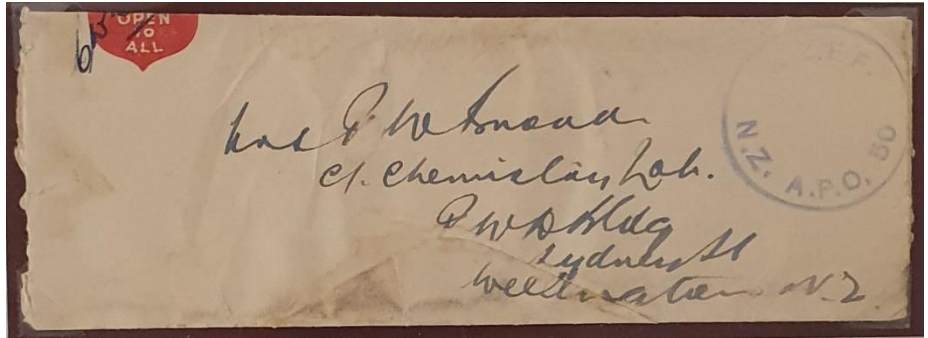 OPEN
TO
ALL
E.F.
N.Z. A.P.O. 50
Mrs P W
c/. Chemistry Lab.
P W D Bldg
Sydney St
Wellington N.Z